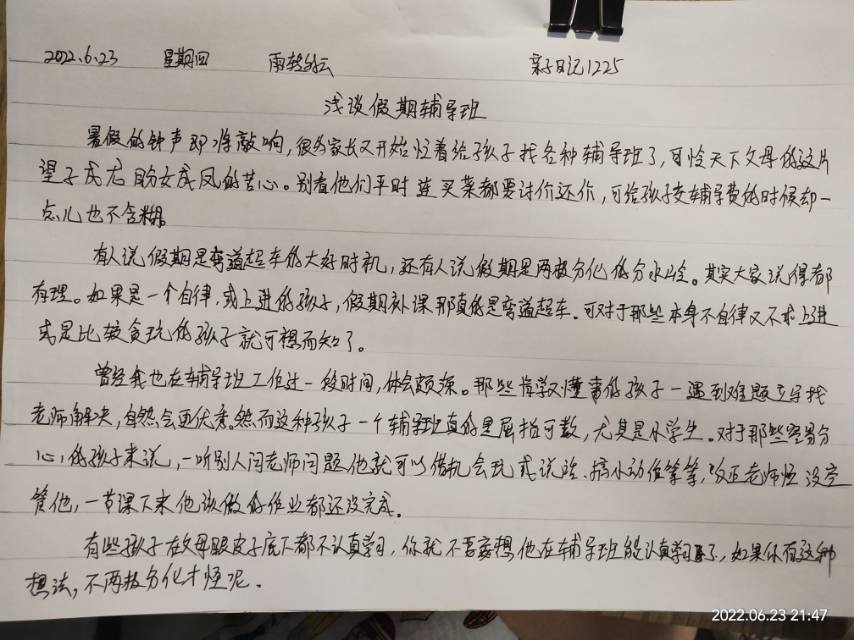 2022.6.23 星期四 雨转多云 亲子日记1225
浅谈假期辅导班
暑假的钟声即将敲响，很多家长又开始忙着给孩子找各种辅导班了，可怜天下父母的这片
望子成龙盼女成凤的苦心。别看他们平时连买菜都要讨价还价，可给孩子交辅导费的时候却一
点儿也不含糊。
有人说假期是弯道超车的大好时机，还有人说假期是两极分化的分水岭。其实大家说得都
有理。如果是一个自律，求上进的孩子，假期补课那真的是弯道超车。可对于那些本身不自律又不求上进
或是比较贪玩的孩子就可想而知了。
曾经我也在辅导班工作过一段时间，体会颇深。那些肯学又懂事的孩子一遇到难题立马找
老师解决，自然会更优秀。然而这种孩子一个辅导班真的是屈指可数，尤其是小学生。对于那些容易分
心的孩子来说，一听别人问老师问题他就可以借机会玩或说话、搞小动作等等，反正老师也没空
管他，一节课下来他该做的作业都还没完成。
有些孩子在父母眼皮子底下都不认真学习，你就不要妄想他在辅导班能认真学习了，如果你有这种
想法，不两极分化才怪呢。
2022.06.23 21:47